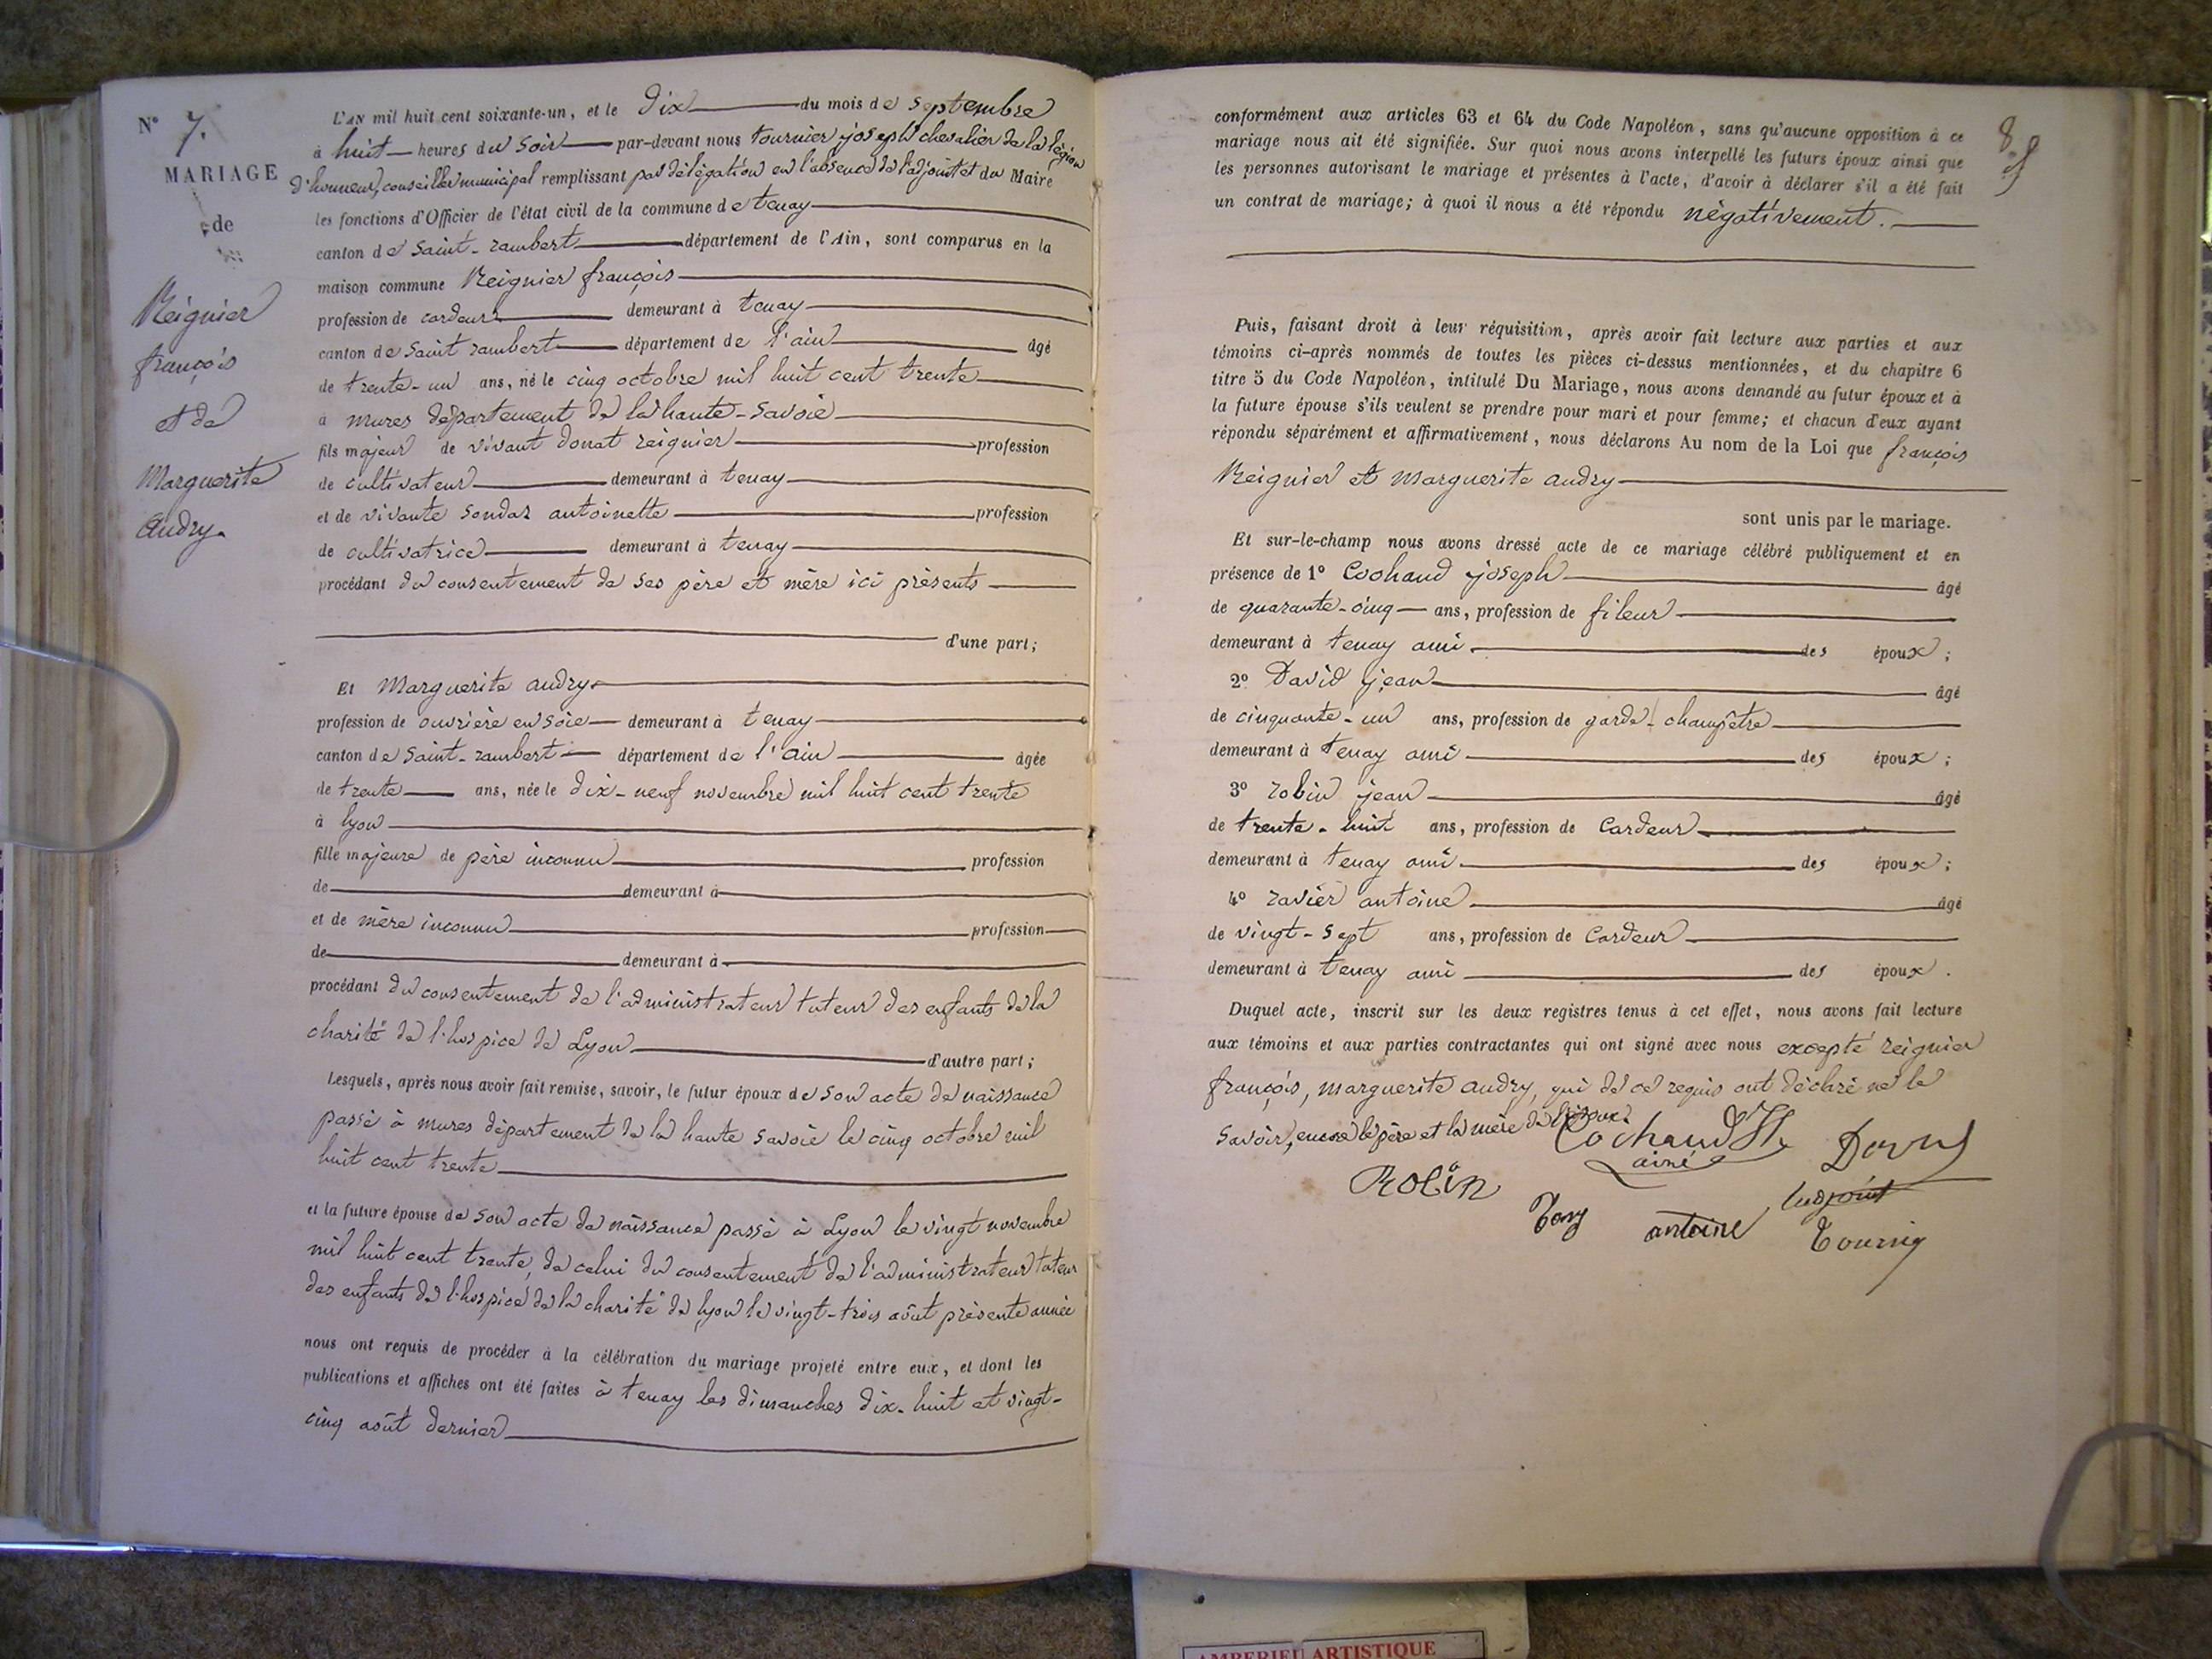 N° 7.
MARIAGE
de
Reignier
françois
et de
Marguerite
audry.
L'AN mil huit cent soixante-un, et le Dix du mois de septembre
à huit heures du soir par-devant nous tournier joseph chevalier de la légion
d'honneur, conseiller municipal remplissant par délégation en l'absence de l'adjoint et du Maire
les fonctions d'Officier de l'état civil de la commune de tenay
canton de saint-rambert département de l'Ain, sont comparus en la
maison commune Reignier françois
profession de cardeur demeurant à tenay
canton de saint rambert département de l'ain âgé
de trente-un ans, né le cinq octobre mil huit cent trente
à mures département de la haute-savoie
fils majeur de vivant donat reignier profession
de cultivateur demeurant à tenay
et de vivante sondaz antoinette profession
de cultivatrice demeurant à tenay
procédant du consentement de ses père et mère ici présents
d'une part;
Et Marguerite audry
profession de ouvrière en soie demeurant à tenay
canton de saint-rambert département de l'ain âgée
de trente ans, née le dix-neuf novembre mil huit cent trente
à lyon
fille majeure de père inconnu profession
de demeurant à
et de mère inconnu profession
de demeurant à
procédant du consentement de l'administrateur tuteur des enfants de la
charité de l'hospice de Lyon d'autre part;
Lesquels, après nous avoir fait remise, savoir, le futur époux de son acte de naissance
passé à mures département de la haute savoie le cinq octobre mil
huit cent trente
et la future épouse de son acte de naissance passé à Lyon le vingt novembre
mil huit cent trente, de celui du consentement de l'administrateur tuteur
des enfants de l'hospice de la charité de lyon le vingt-trois août présente année
nous ont requis de procéder à la célébration du mariage projeté entre eux, et dont les
publications et affiches ont été faites à tenay les dimanches dix-huit et vingt-
cinq août dernier
8
conformément aux articles 63 et 64 du Code Napoléon, sans qu'aucune opposition à ce
mariage nous ait été signifiée. Sur quoi nous avons interpellé les futurs époux ainsi que
les personnes autorisant le mariage et présentes à l'acte, d'avoir à déclarer s'il a été fait
un contrat de mariage; à quoi il nous a été répondu négativement.
Puis, faisant droit à leur réquisition, après avoir fait lecture aux parties et aux
témoins ci-après nommés de toutes les pièces ci-dessus mentionnées, et du chapitre 6
titre 5 du Code Napoléon, intitulé Du Mariage, nous avons demandé au futur époux et à
la future épouse s'ils veulent se prendre pour mari et pour femme; et chacun d'eux ayant
répondu séparément et affirmativement, nous déclarons Au nom de la Loi que françois
Reignier et Marguerite audry
sont unis par le mariage.
Et sur-le-champ nous avons dressé acte de ce mariage célébré publiquement et en
présence de 1° Cochaud joseph âgé
de quarante-cinq ans, profession de fileur
demeurant à tenay ami des époux;
2° David jean âgé
de cinquante-un ans, profession de garde-champêtre
demeurant à tenay ami des époux;
3° robin jean âgé
de trente-huit ans, profession de Cardeur
demeurant à tenay ami des époux;
4° ravier antoine âgé
de vingt-sept ans, profession de Cardeur
demeurant à tenay ami des époux.
Duquel acte, inscrit sur les deux registres tenus à cet effet, nous avons fait lecture
aux témoins et aux parties contractantes qui ont signé avec nous excepté reignier
françois, marguerite audry, qui de ce requis ont déclaré ne le
savoir, encore le père et la mère de l'époux.
Cochaud
ainé
Robin
antoine
AMBERIEU ARTISTIQUE